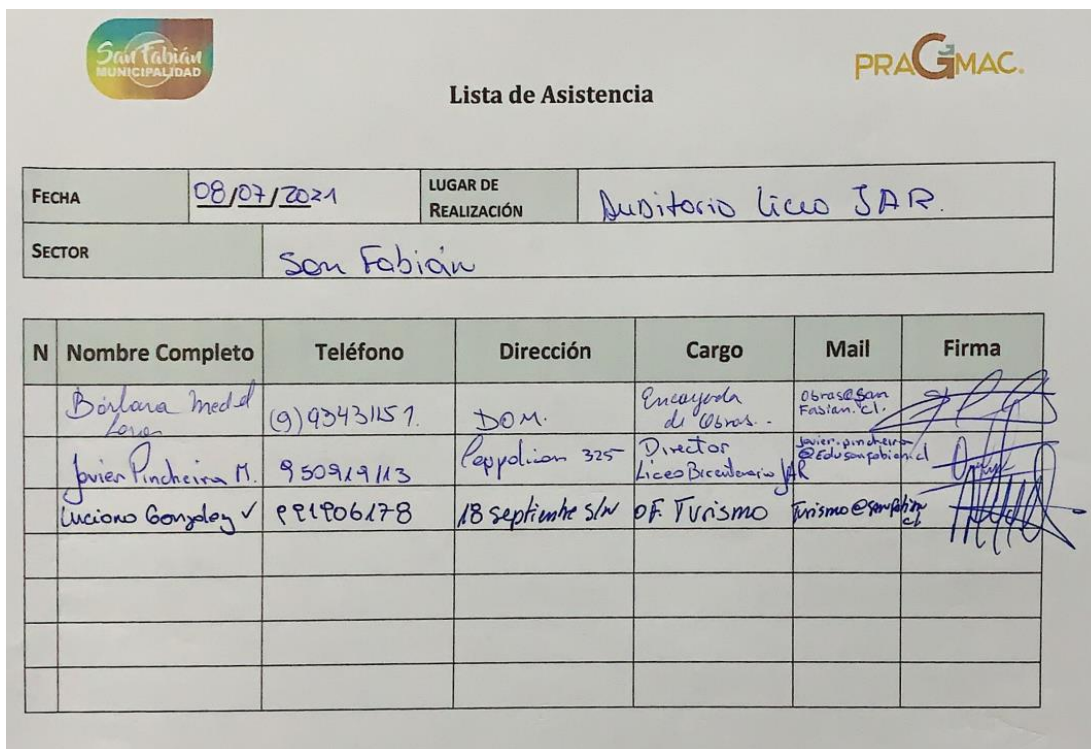 San Fabián
MUNICIPALIDAD
PRAGMAC.
Lista de Asistencia
FECHA 08/07/2021 LUGAR DE REALIZACIÓN Auditorio Liceo JAR.
SECTOR San Fabián
N Nombre Completo Teléfono Dirección Cargo Mail Firma
Bárbara Medel (9)93431151. DOM. Encargada de Obras.. obras@san fabian.cl.
Javier Pincheira M. 950919113 325 Director Liceo Bicentenario JAR javier.pincheira @Edusanfabian.cl
Luciano Gonzalez V 18 septiembre S/N OF. Turismo Turismo@sanfabian cl